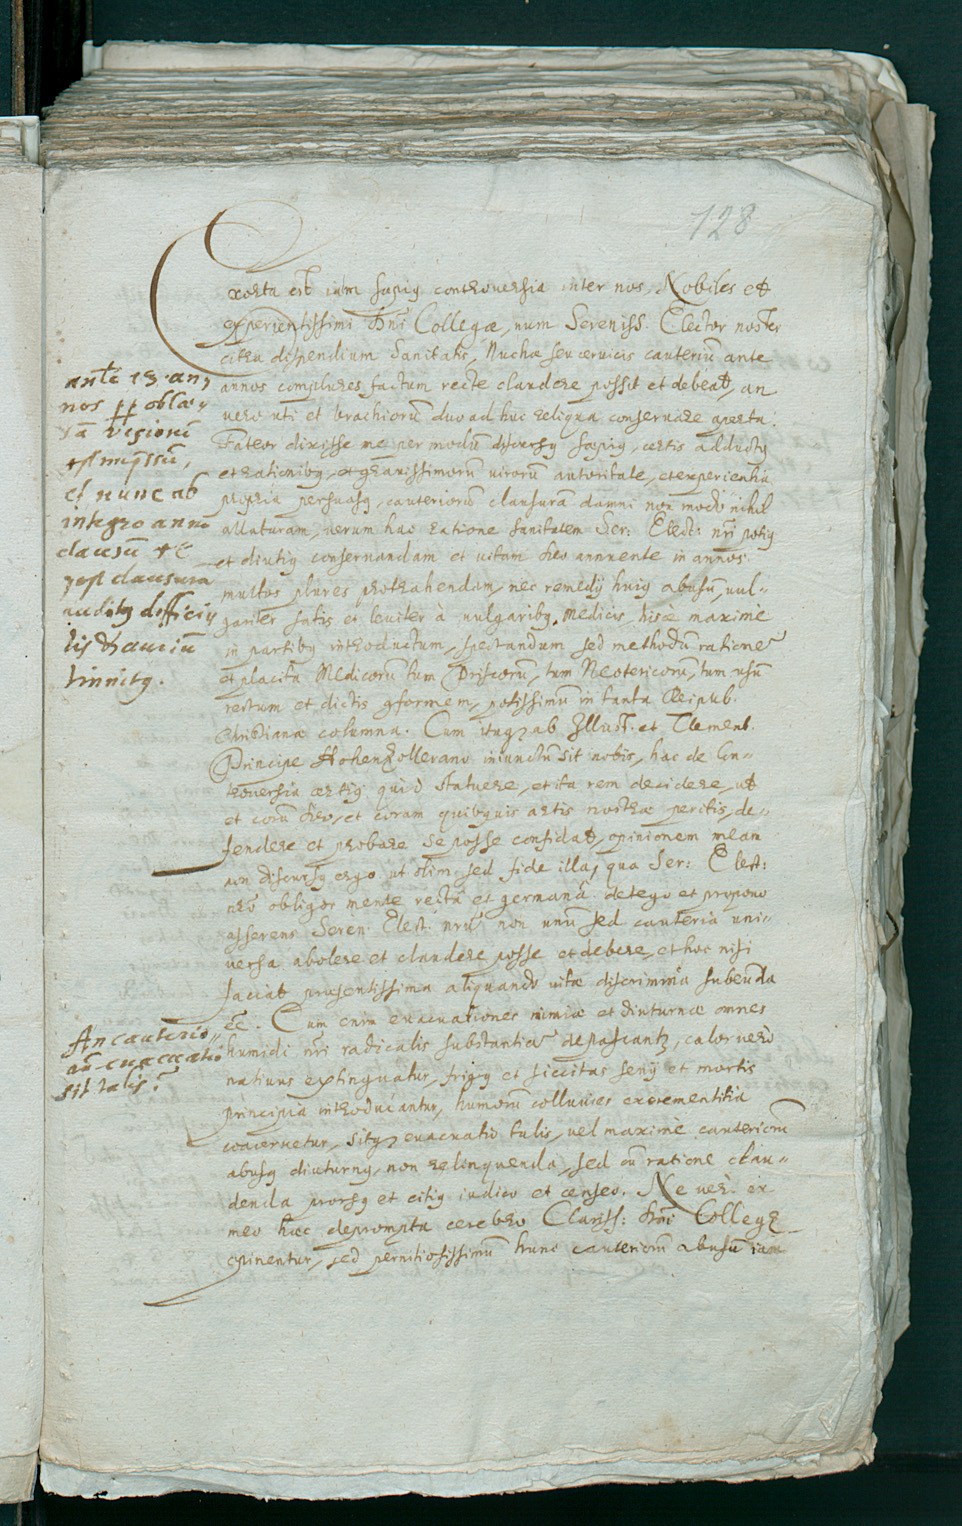 128
Exorta est iam sæpiꝰ controversia inter nos, Nobiles et
experientissimi Dn̄i Collegæ, num Sereniss. Elector noster
citra dispendium sanitatis, Nuchæ seu cervicis cauteriū ante
annos complures factum recte claudere possit et debeat, an
vero uti et brachiorū duo ad huc reliqua conservare aperta.
Fateor dixisse me per modū discursꝰ sæpiꝰ, certis adductꝰ
et rationibꝰ, et gravissimorū virorū autoritate, et experientia
propria persuasꝰ, cauteriorū clausurā damni non modo nihil
allaturam, verum hac ratione sanitatem Ser: Elect: nr̄i potiꝰ
et diutiꝰ conservandam et vitam deo annuente in annos
multos plures protrahendam, nec remedij huiꝰ abusū, vul-
gariter satis et leviter à vulgaribꝰ Medicis, hisce maximè
in partibꝰ introductum, spectandum sed methodū ratione
et placita Medicorū tum Priscorū, tum Neotericorū, tum usū
rectum et dictis conformem, potissimū in tanta Reipub.
Christianæ columna. Cum itaq ab Illust. et Clement.
Principe Hohenzollerano iniunctū sit nobis, hac de con-
troversia certiꝰ quid statuere, et ita rem decidere, ut
et corā deo, et coram quibusvis artis nostræ peritis, de-
fendere et probare se posse confidat, opinionem meam
non discursꝰ ergo ut olim, sed fide illa, qua Ser: Elect:
nr̄o obligor mente rectā et germanā detego et propono
asserens Seren. Elect. nr̄ū non unū sed cauteria uni-
versa abolere et claudere posse et debere, et hoc nisi
faciat præsentissima aliquando vitæ discrimina subeunda
eē. Cum enim evacuationes nimiæ et diuturnæ omnes
humidi nr̄i radicalis substantiā depascantr, calor vero
nativus extinguatur, frigꝰ et siccitas senij et mortis
principia introducantur, humorū colluvies excrementitia
coacervetur, sitq evacuatio talis, vel maximè cauteriorū
abusꝰ diuturnꝰ, non relinquenda, sed cū ratione clau-
denda prorsꝰ et citiꝰ iudico et censeo. Ne verò ex
meo hæc deprompta cerebro Clariss: Dn̄i Collegæ
opinentur, sed pernitiosissimū hunc cauteriorū abusū iam
ante 13. an
nos
visionē
et nunc ab
integro anno
clausū
post clausurā
auditꝰ difficiꝰ
tinnitꝰ.
An cauterio-
rū evacuatio
sit talis?